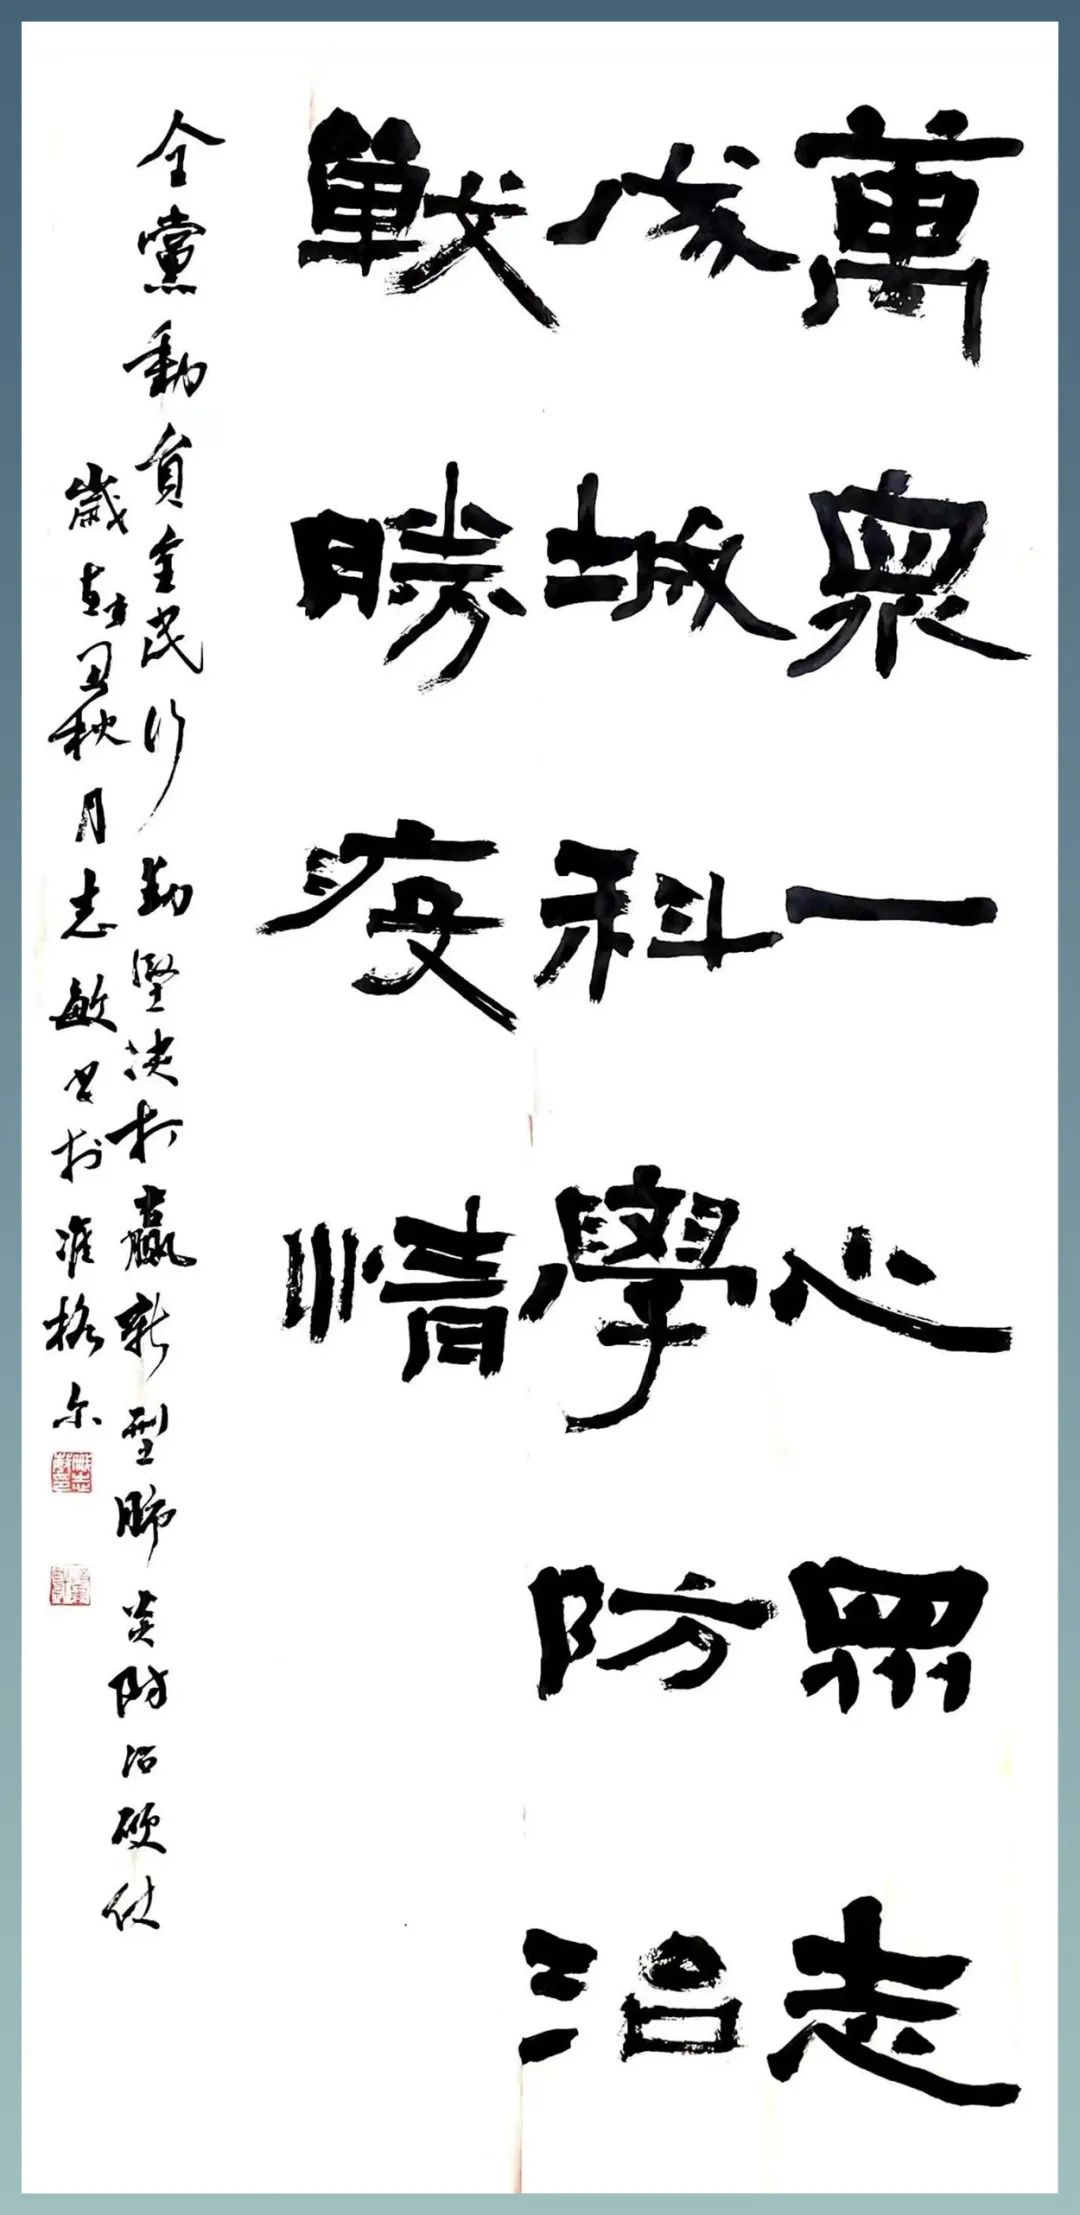 萬衆一心眾志
成城科學防治
戰勝疫情
全黨動員全民行動堅決打贏新型肺炎防治硬仗
歲在辛丑秋月志敏书於准格尔